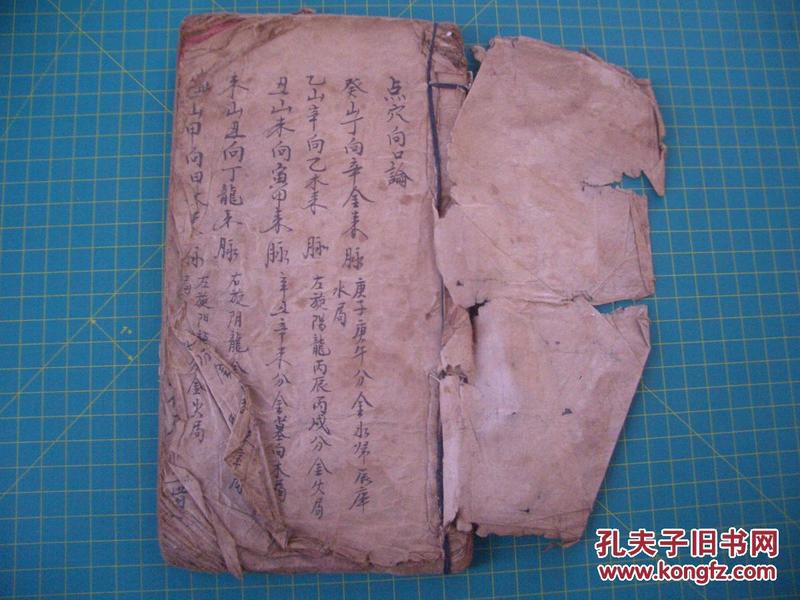 点穴向口論
癸山丁向辛金来脉庚子庚午分金水归辰库
水局
乙山辛向乙木来脉左旋陽龍丙辰丙戌分金火局
丑山未向寅甲来脉辛丑辛未分金墓向木局
未山丑向丁龍来脉右旋阴龍
山甲向田木脉左旋阴分金火局
孔夫子旧书网
www.kongfz.com